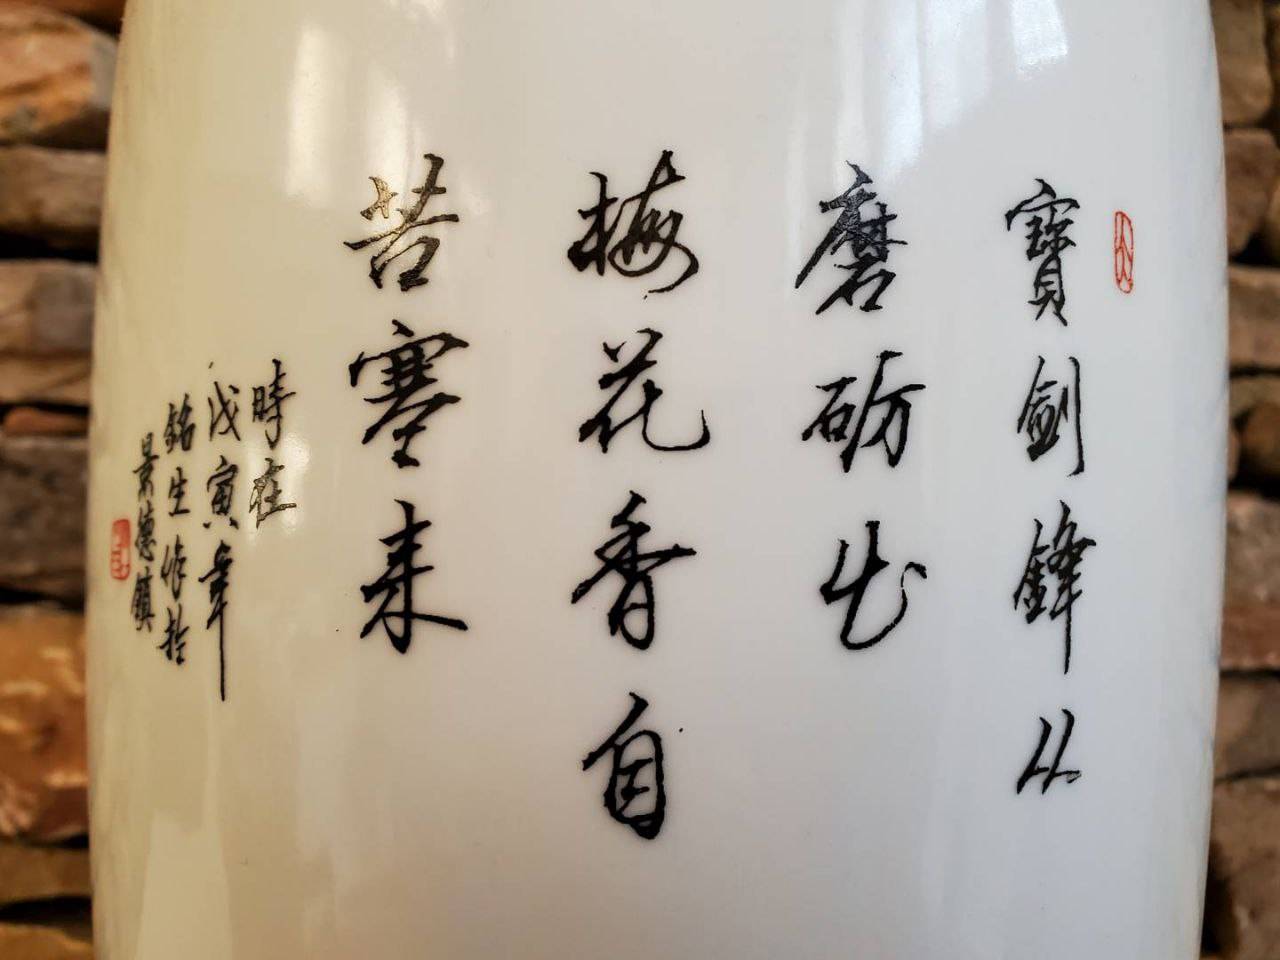 寶劍鋒从
磨砺出
梅花香自
苦寒来
時在
戊寅年
銘生作於
景德鎮